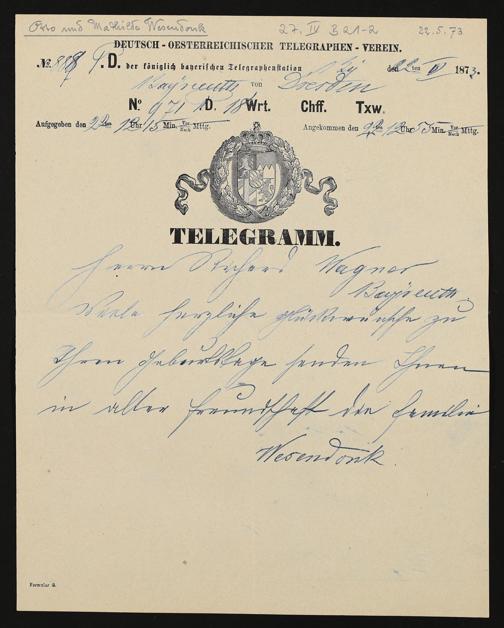 Otto und Mathilde Wesendonk 27. IV B 21-2 22.5.73
DEUTSCH-OESTERREICHISCHER TELEGRAPHEN-VEREIN.
№ 888 T.D. der königlich bayerischen Telegraphenstation den 22ten 1873
Bayreuth von Dresden
No 971 D. 18 Wrt. Chff. Txw.
Aufgegeben den 22 12 Uhr 15 Min. Vor Nach Mttg. Angekommen den 12 Uhr 55 Min. Vor Nach Mttg.
TELEGRAMM.
Herrn Richard Wagner
Bayreuth
Viele herzliche Glückwünsche zu
Ihrem Geburtstage senden Ihnen
in alter Freundschaft die Familie
Wesendonk.
Formular 9.